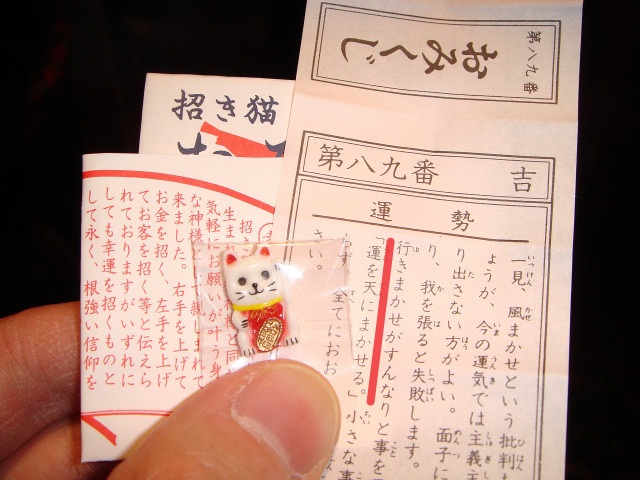 第八九番
おみくじ
招き猫
第八九番 吉
運勢
一見、風まかせという批判も
ょうが、今の運気では主義主
り出さない方がよい。面子に
り、我を張ると失敗します。
行きまかせがすんなりと事を
「運を天にまかせる。」小さな事
わず、全てにおお
さい。
招き
生まれ 様と同
気軽にお願いが叶う身
な神様として親しまれて
来ました。右手を上げて
お金を招く、左手を上げ
てお客を招く等と伝えら
れておりますがいずれに
しても幸運を招くものと
して永く、根強い信仰を